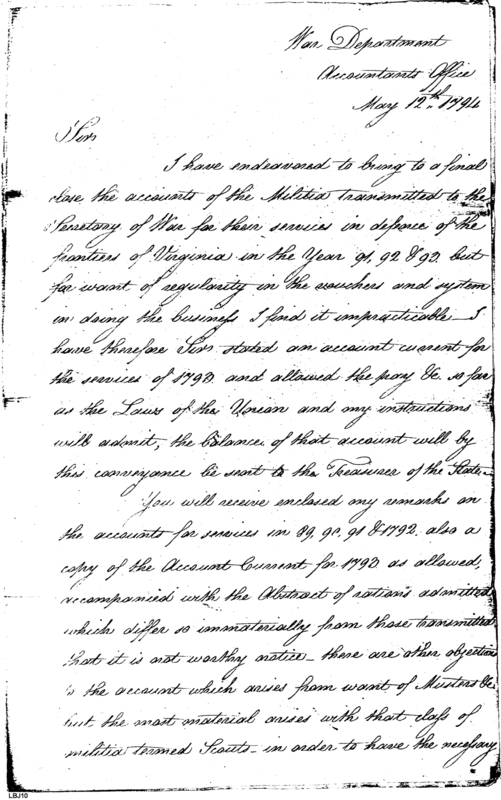 War Department
Accountants Office
May 12th. 1794
Sir
I have endeavored to bring to a final
close the accounts of the Militia transmitted to the
Secretary of War for their services in defence of the
frontiers of Virginia in the Year 91, 92 & 93. but
for want of regularity in the vouchers and system
in doing the business I find it impracticable I
have therefore Sir stated an account current for
the services of 1793 and allowed the pay &c. so far
as the Laws of the Union and my instructions
will admit, the balance of that account will by
this conveyance be sent to the Treasurer of the State—
You will receive enclosed my remarks on
the accounts for services in 89, 90, 91 & 1792. also a
copy of the Account Current for 1793 as allowed,
accompanied with the Abstract of rations admitted
which differ so immaterially from those transmitted
that it is not worthy notice— there are other objections
to the account which arises from want of Musters &c
but the most material arises with that class of
militia termed Scouts— in order to have the necessary
LBJ10